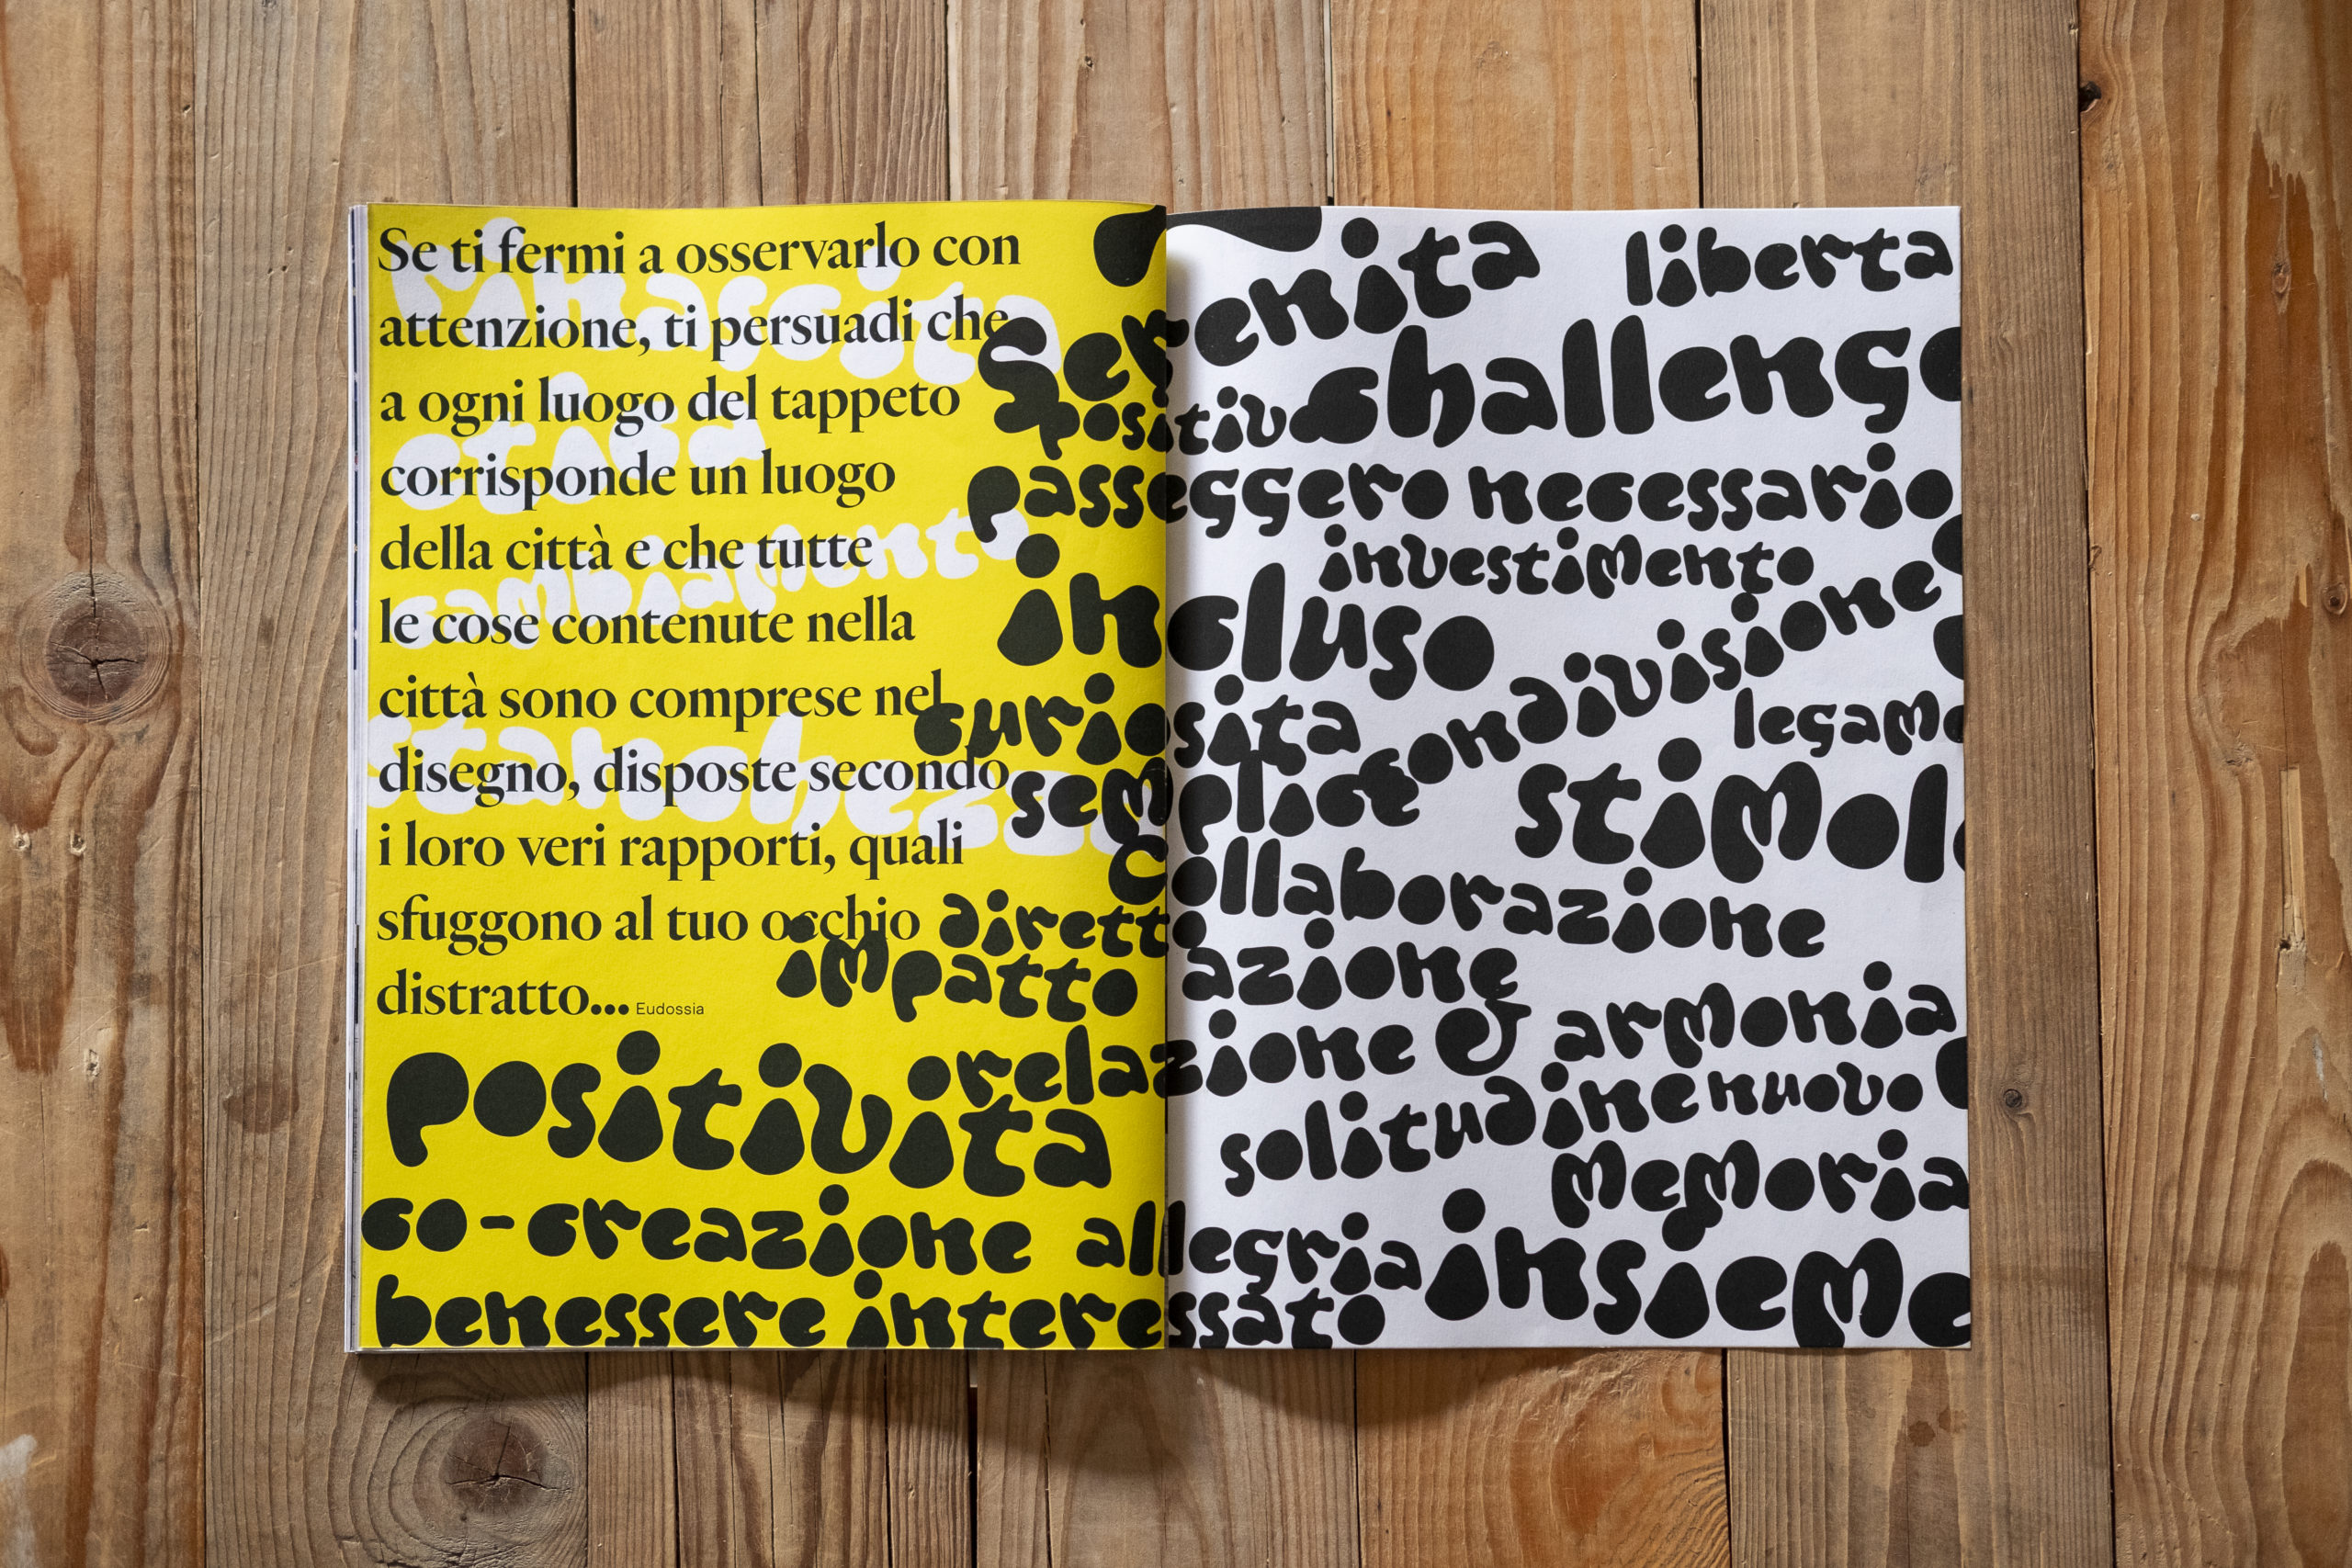 Se ti fermi a osservarlo con
attenzione, ti persuadi che
a ogni luogo del tappeto
corrisponde un luogo
della città e che tutte
le cose contenute nella
città sono comprese nel
disegno, disposte secondo
i loro veri rapporti, quali
sfuggono al tuo occhio
distratto... Eudossia
rinascita
cambiamento
serenita
liberta
positivo
challenge
passeggero necessario
investimento
incluso
condivisione
curiosita
legame
semplice
stimol
collaborazione
diretto
impatto
azione
relazione & armonia
positivita
solitudine nuovo
memoria
co-creazione allegria insieme
benessere interessato